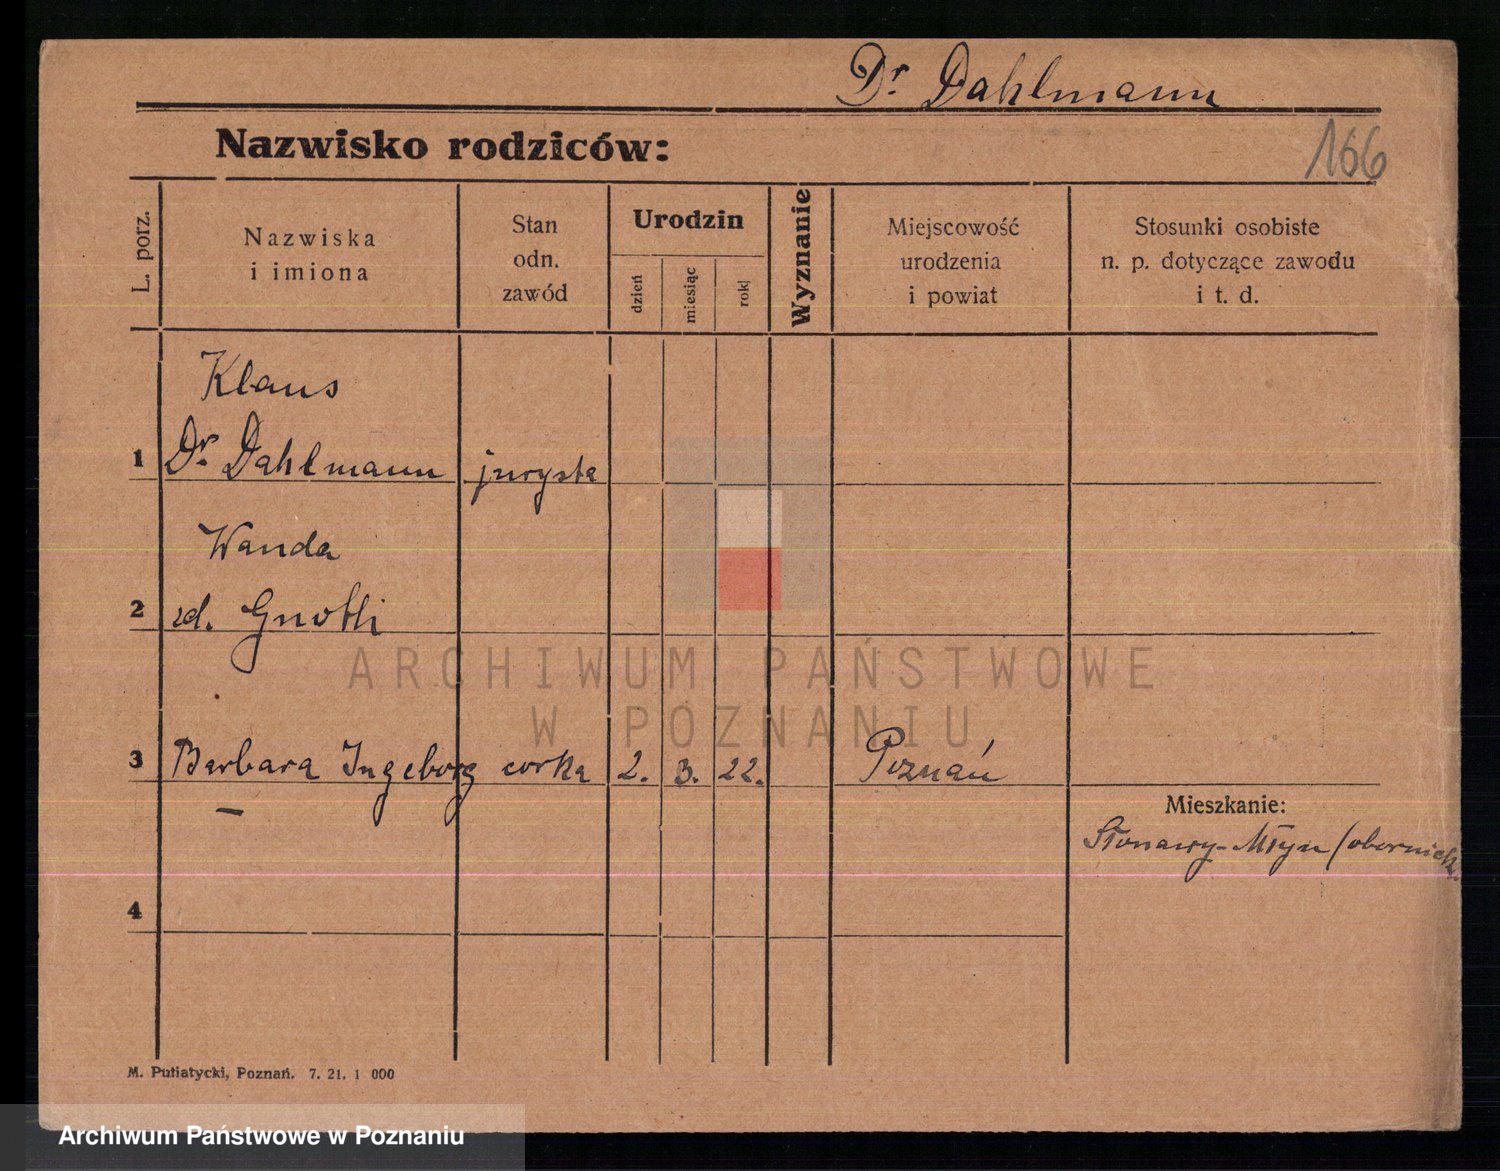 Dr. Dahlmann
Nazwisko rodziców:
166
L. porz.
Nazwiska
i imiona
Stan
odn.
zawód
Urodzin
dzień
miesiąc
rok
Wyznanie
Miejscowość
urodzenia
i powiat
Stosunki osobiste
n. p. dotyczące zawodu
i t. d.
Klaus
1 Dr. Dahlmann jurysta
Wanda
2 zd.
ARCHIWUM PAŃSTWOWE
W POZNANIU
3 Barbara Ingeborg corka 2. 3. 22. Poznań
—
Mieszkanie:
Słonawy-Młyn (obornick.
4
M. Putiatycki, Poznań. 7. 21. 1 000
Archiwum Państwowe w Poznaniu